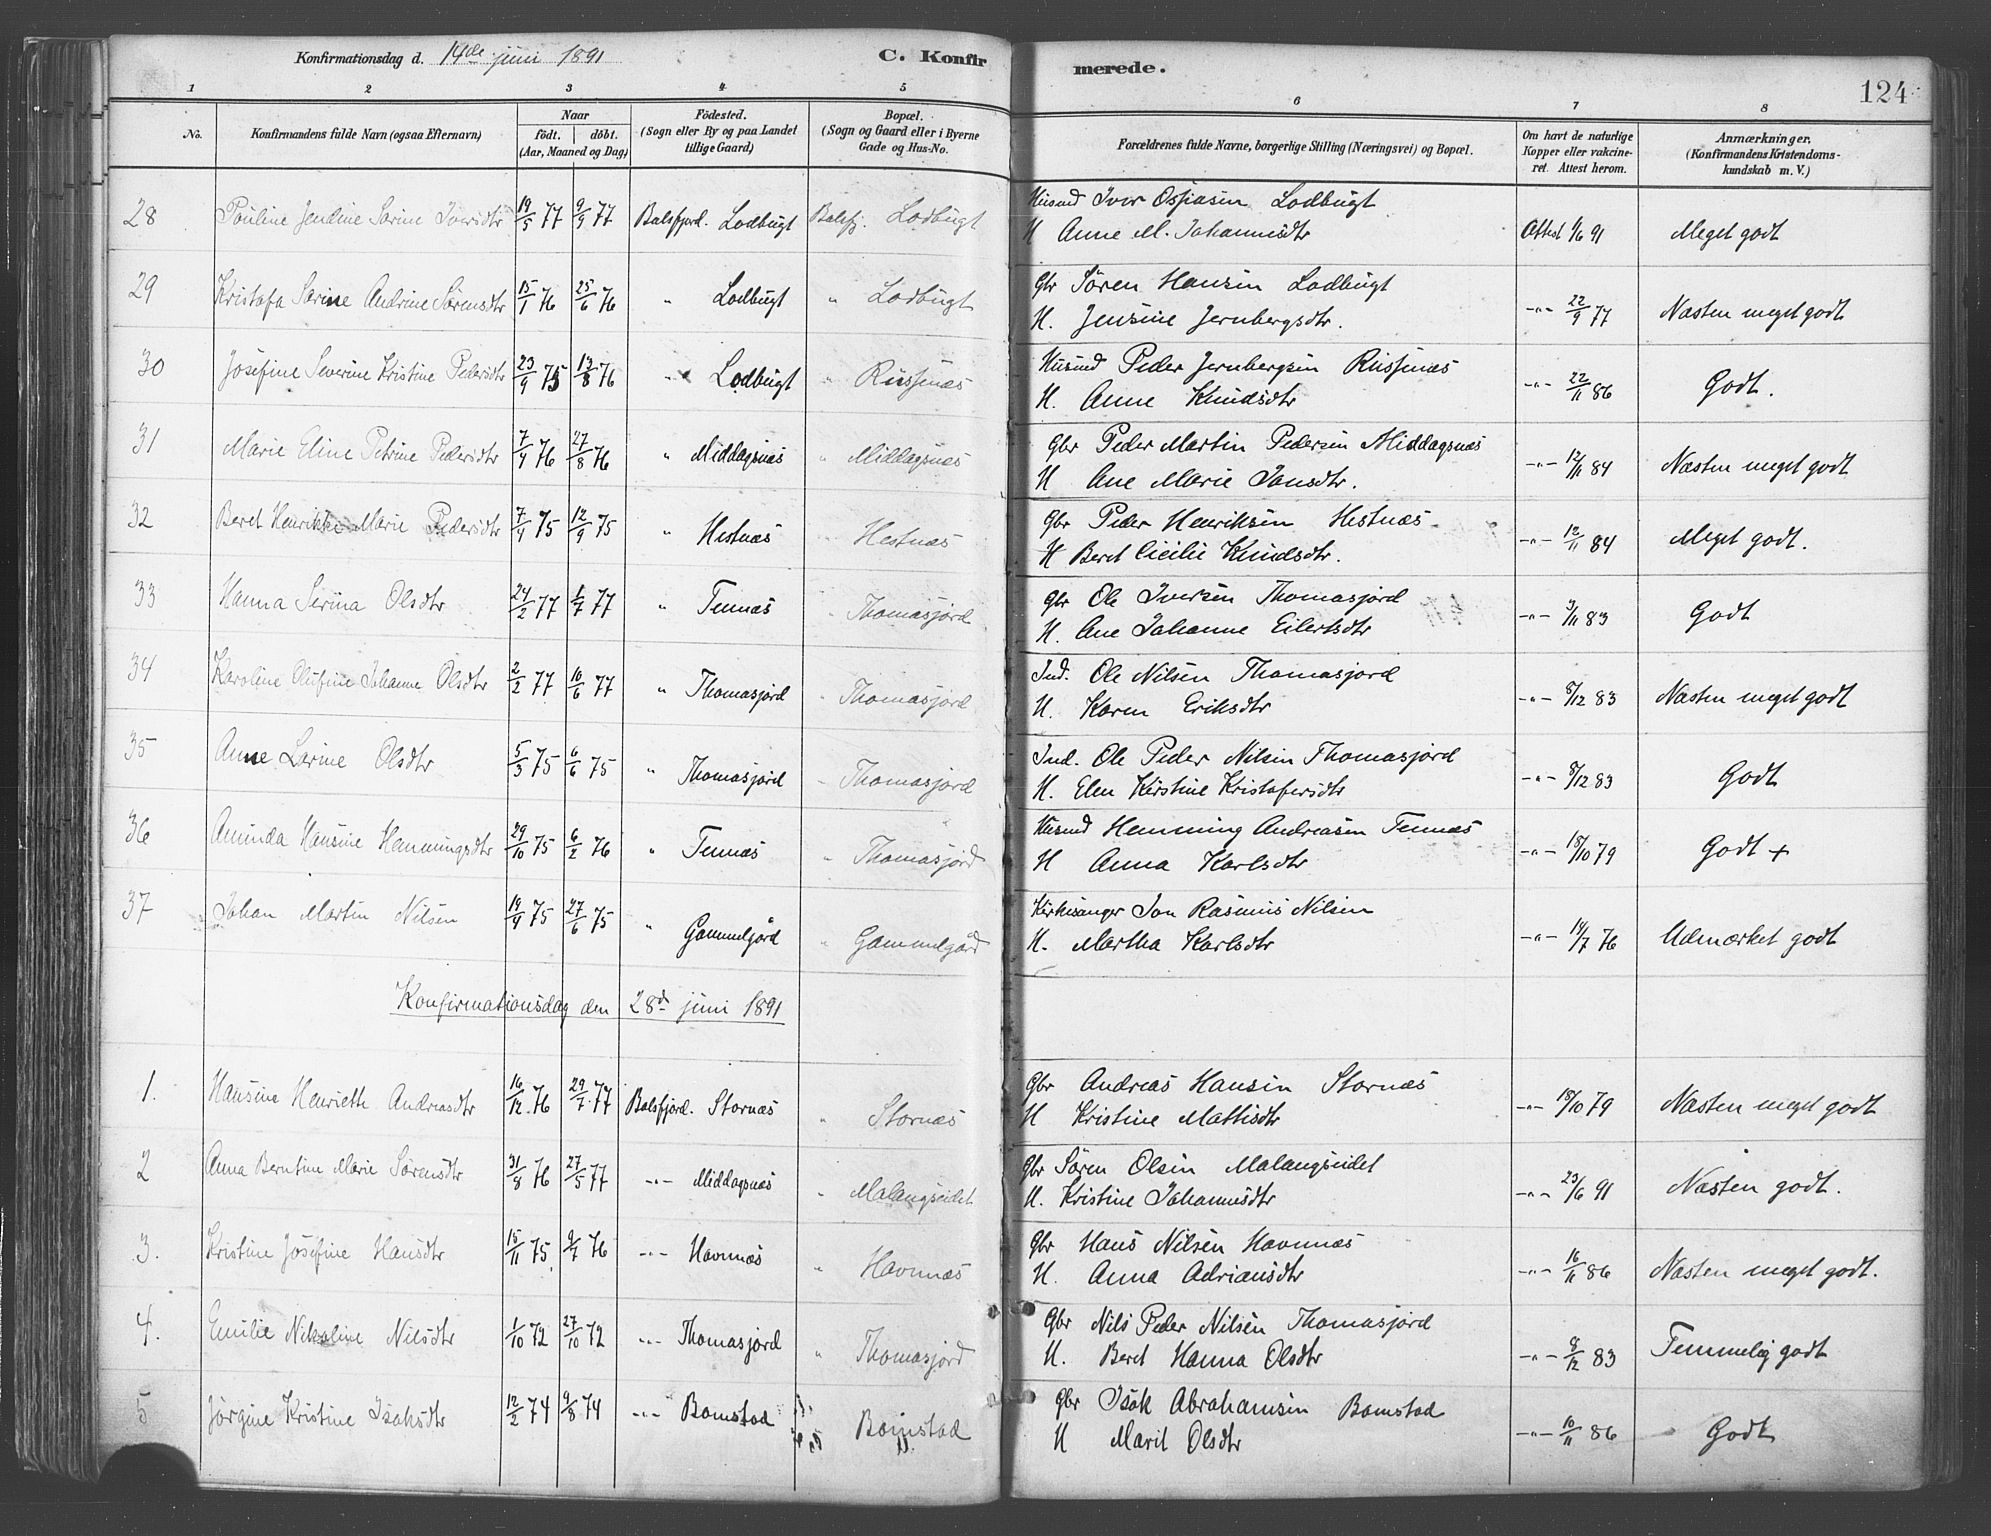 Konfirmationsdag d. 14de juni 1891
C. Konfirmerede.
124
1 2 3 4 5 6 7 8
No.
Konfirmandens fulde Navn (ogsaa Efternavn)
Naar
født. døbt.
(Aar, Maaned og Dag)
Fødested.
(Sogn eller By og paa Landet
tillige Gaard)
Bopæl.
(Sogn og Gaard eller i Byerne
Gade og Hus-No.
Forældrenes fulde Navne, borgerlige Stilling (Næringsvei) og Bopæl.
Om havt de naturlige
Kopper eller vakcine-
ret. Attest herom.
Anmærkninger,
(Konfirmandens Kristendoms-
kundskab m. V.)
28 Pouline Jendine Sarine Iversdtr 19/5 77 9/9 77 Balsfjord. Lodbugt Balsfj. Lodbugt Husmd Iver Osiasen Lodbugt
H Anne M. Johannesdtr Attest 1/6 91 Meget godt
29 Kristofa Sarine Andrine Sørensdtr 15/1 76 25/6 76 " Lodbugt " Lodbugt Gbr Søren Hansen Lodbugt
H. Jensine Jernbergsdtr. -"- 22/9 77 Næsten meget godt
30 Josefine Severine Kristine Pedersdtr 23/9 75 13/8 76 " Lodbugt " Russenæs Husmd Peder Jernbergsen Russenæs
H. Anne Knudsdtr -"- 22/11 86 Godt.
31 Marie Eline Petrine Pedersdtr 7/4 76 27/8 76 " Middagsnæs " Middagsnæs Gbr Peder Martin Pedersen Middagsnæs
H Ane Marie Jansdtr. -"- 12/11 84 Næsten meget godt
32 Beret Henrikke Marie Pedersdtr 7/4 75 12/9 75 " Hestnæs " Hestnæs Gbr Peder Henriksen Hestnæs
H Beret Cicilie Knudsdtr. -"- 12/11 84 Meget godt.
33 Hanna Serina Olsdtr 24/2 77 1/7 77 " Tennæs " Thomasjord Gbr Ole Iversen Thomasjord
H. Ane Johanne Eilertsdtr -"- 9/11 83 Godt
34 Karoline Olufine Johanne Olsdtr 2/2 77 10/6 77 " Thomasjord " Thomasjord Ind. Ole Nilsen Thomasjord
H. Karen Eriksdtr -"- 8/12 83 Næsten meget godt
35 Anne Larine Olsdtr 5/3 75 6/6 75 " Thomasjord " Thomasjord Ind. Ole Peder Nilsen Thomasjord
H. Elen Kirstine Kristofersdtr -"- 8/12 83 Godt
36 Aminda Hansine Henningsdtr 29/10 75 6/2 76 " Tennæs " Thomasjord Husmd Hemming Andreasen Tennæs
H Anna Karlsdtr -"- 18/10 79 Godt +
37 Johan Martin Nilsen 19/4 75 27/6 75 " Gammelgård " Gammelgård Kirkesanger Jon Rasmus Nilsen
H. Martha Karlsdtr -"- 14/7 76 Udmærket godt
Konfirmationsdag den 28d juni 1891
1. Hansine Henriette Andreasdtr 16/12 76 29/7 77 Balsfjord. Stornæs " Stornæs Gbr Andreas Hansen Stornæs
H Kristine Mattisdtr -"- 18/10 79 Næsten meget godt
2 Anna Berntine Marie Sørensdtr 31/8 76 27/5 77 -"- Middagsnæs " Malangseidet Gbr Søren Olsen Malangseidet
H. Kristine Johannesdtr -"- 23/6 91 Næsten godt.
3. Kristine Josefine Hansdtr 15/11 75 9/7 76 -"- Havnnæs " Havnnæs Gbr Hans Nilsen Havnnæs
H. Anna Adriansdtr -"- 16/11 86 Næsten meget godt.
4. Emilie Nikoline Nilsdtr 1/10 72 27/10 72 -"- Thomasjord " Thomasjord Gbr Nils Peder Nilsen Thomasjord
H. Beret Hanna Olsdtr -"- 8/12 83 Temmelig godt
5 Jørgine Kristine Isaksdtr 12/2 74 9/8 74 -"- Bomstad Bomstad Gbr Isak Abrahamsen Bomstad
H Marit Olsdtr -"- 10/11 86 Godt